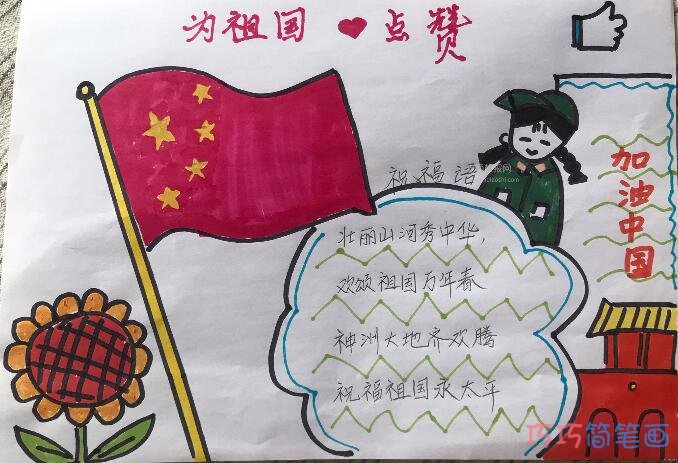 为祖国❤点赞
祝福语
加油中国
壮丽山河秀中华，
欢颂祖国万年春
神洲大地齐欢腾
祝福祖国永太平
巧巧简笔画